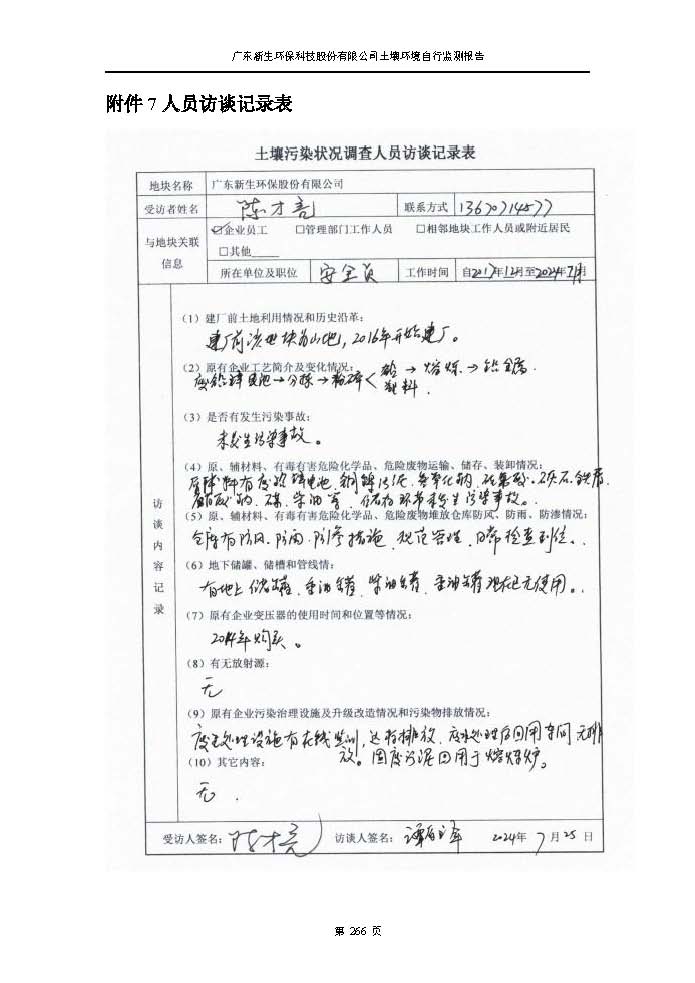 广东新生环保科技股份有限公司土壤环境自行监测报告
附件 7 人员访谈记录表
土壤污染状况调查人员访谈记录表
地块名称 广东新生环保股份有限公司
受访者姓名 陈才亮 联系方式
与地块关联信息 ☑企业员工 □管理部门工作人员 □相邻地块工作人员或附近居民
□其他
所在单位及职位 安全员 工作时间 自2017年12月至2024年7月
访谈内容记录
(1)建厂前土地利用情况和历史沿革:
建厂前该地块为山地,2016年开始建厂。
(2)原有企业工艺简介及变化情况:
废铅蓄电池→分拣→粉碎< 铅→熔炼→铅金属.
塑料.
(3)是否有发生污染事故:
未发生污染事故。
(4)原、辅材料、有毒有害危险化学品、危险废物运输、储存、装卸情况:
原辅料有废铅 电池、铜 污泥、氢氧化钠、
钠、煤、柴油等,储存环节未发生污染事故。
(5)原、辅材料、有毒有害危险化学品、危险废物堆放仓库防风、防雨、防渗情况:
仓库有防风、防雨、防渗措施,规范管理,日常检查到位。
(6)地下储罐、储槽和管线情:
有地上储罐、重油储罐、柴油储罐,重油储罐现在已无使用。
(7)原有企业变压器的使用时间和位置等情况:
2014年购买。
(8)有无放射源:
无
(9)原有企业污染治理设施及升级改造情况和污染物排放情况:
废气处理设施有在线监测,达标排放,废水处理后回用车间无排
放。固废污泥回用于熔炼炉。
(10)其它内容:
无.
受访人签名:陈才亮 访谈人签名: 2024年 7月 25日
第 266 页